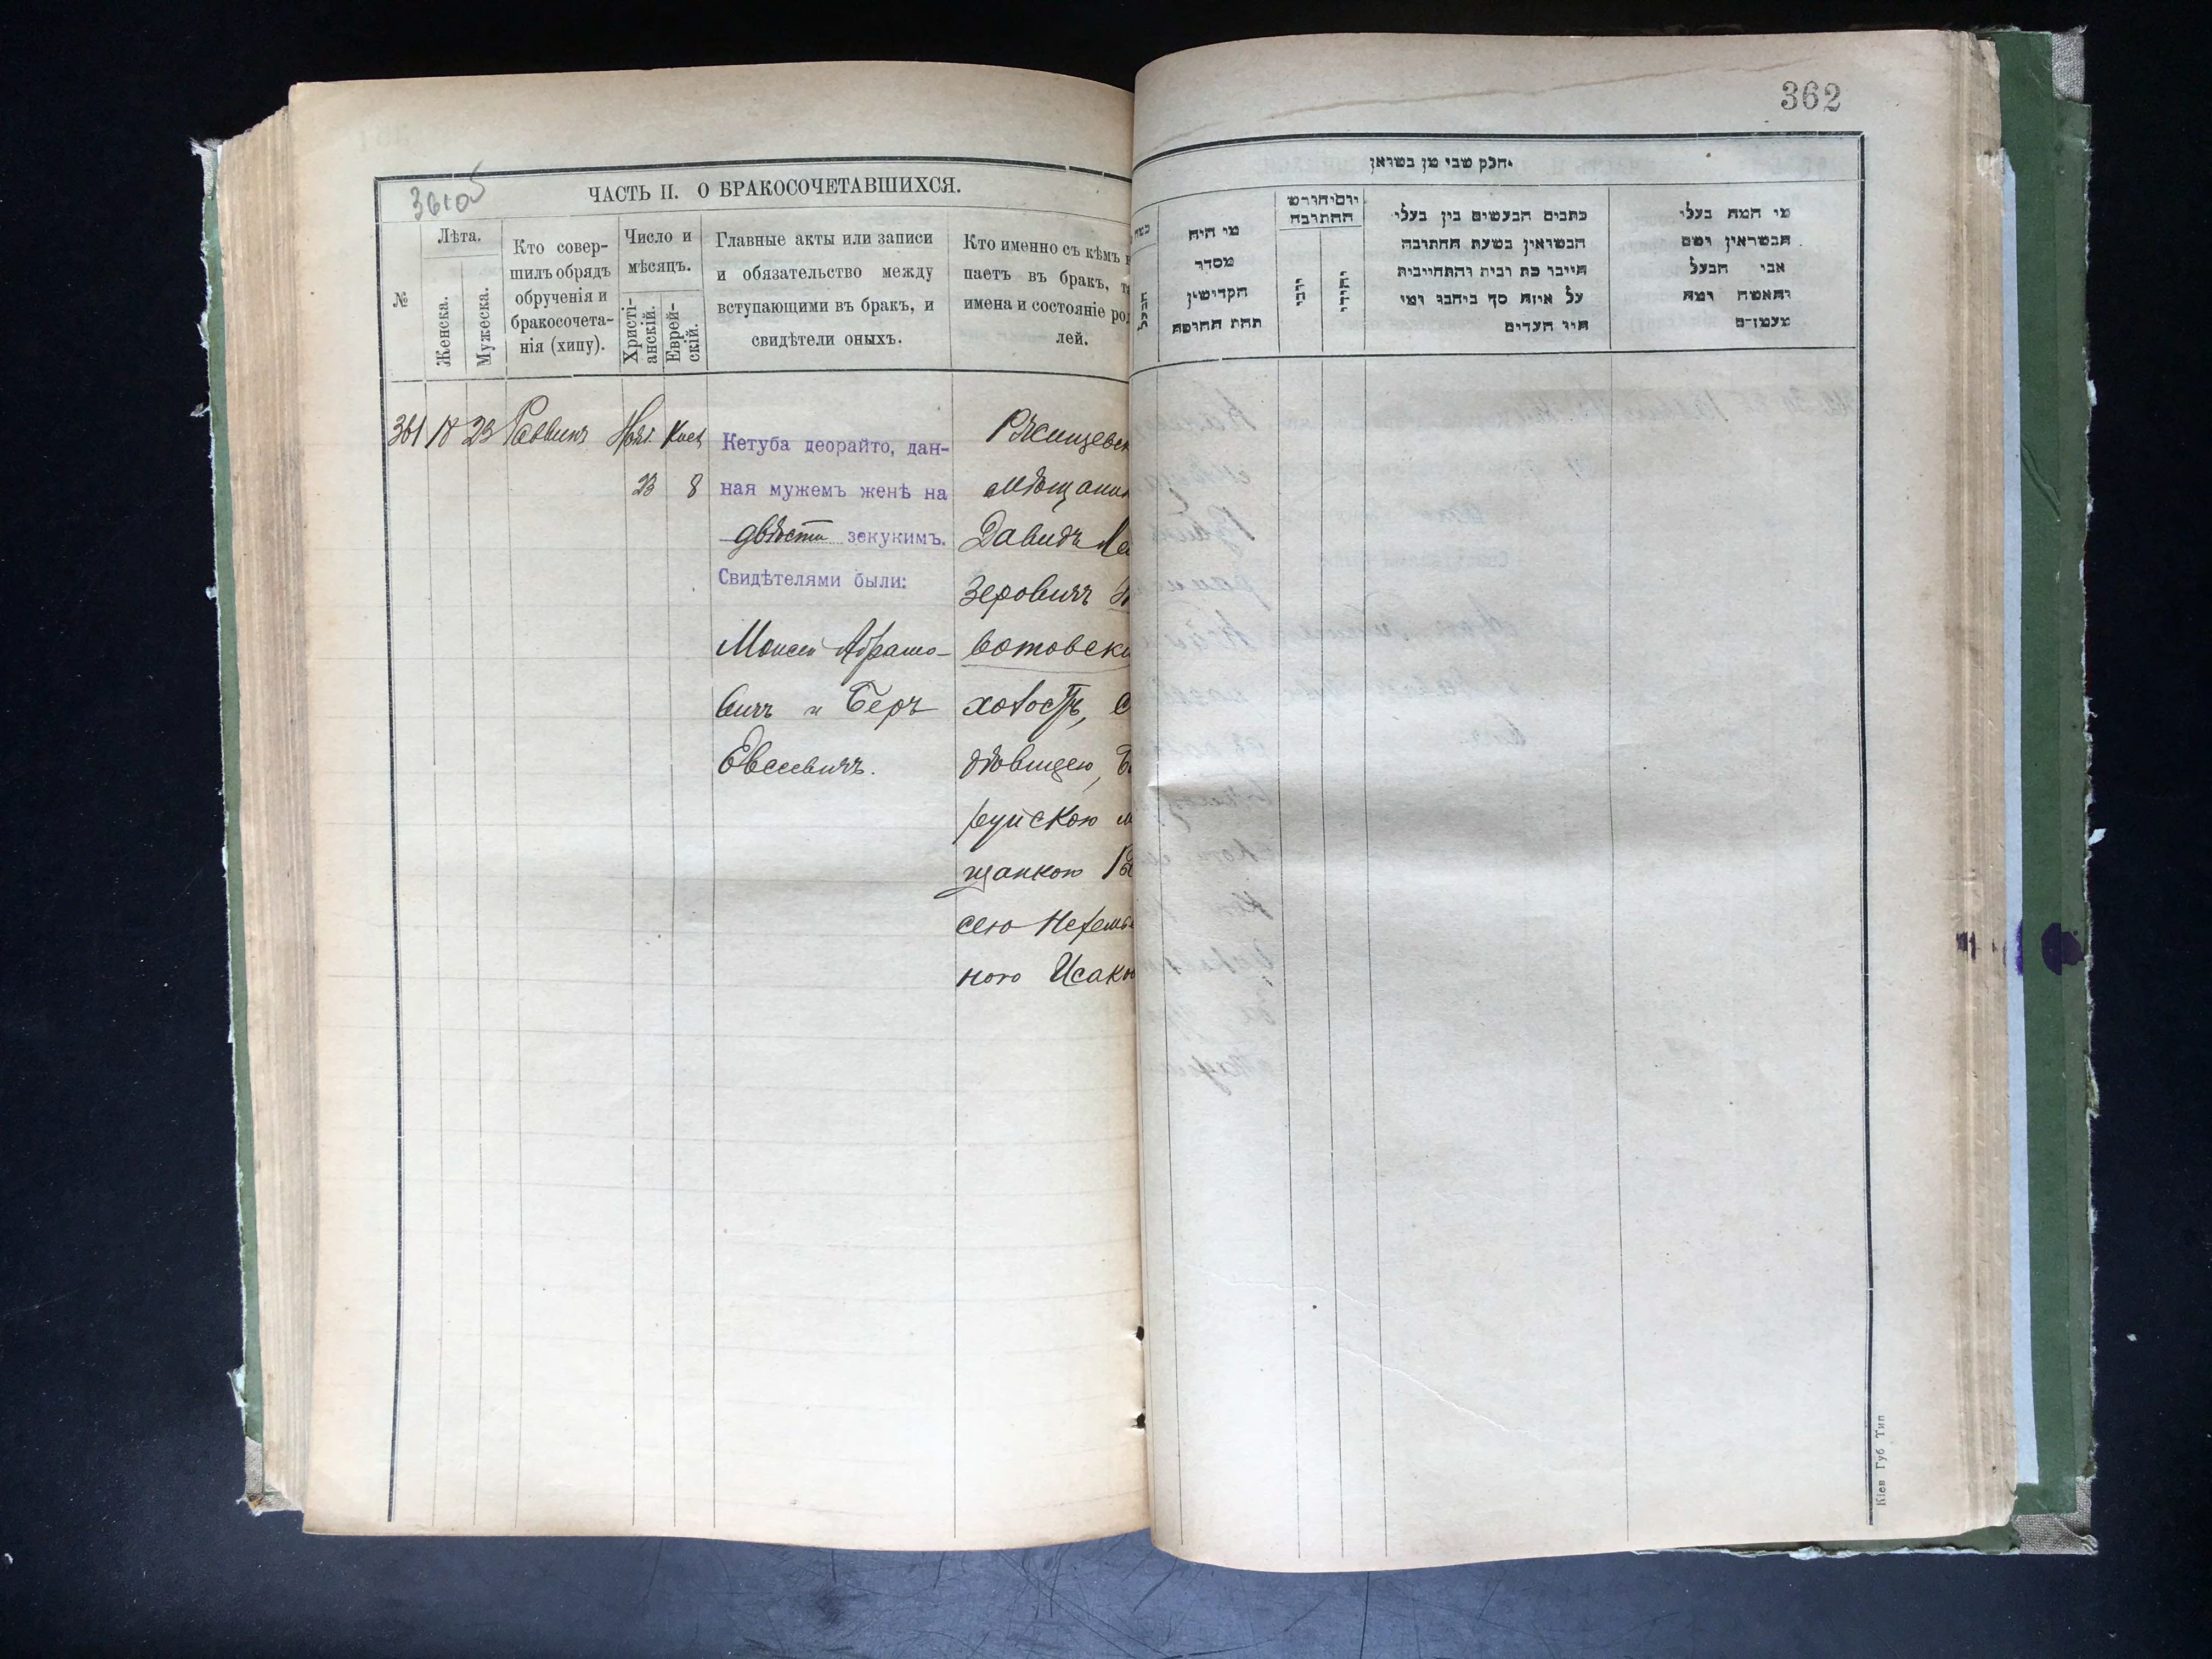 362
ЧАСТЬ II. О БРАКОСОЧЕТАВШИХСЯ.
№
Лѣта.
Женска.
Мужеска.
Кто совер-
шилъ обрядъ
обрученія и
бракосочета-
нія (хипу).
Число и
мѣсяцъ.
Христі-
анскій.
Еврей-
скій.
Главные акты или записи
и обязательство между
вступающими въ бракъ, и
свидѣтели оныхъ.
Кто именно съ кѣмъ
паетъ въ бракъ,
имена и состояніе
лей.
361 18 23 Раввинъ Нояб. Кисл
23 8
Кетуба деорайто, дан-
ная мужемъ женѣ на
двѣсти зекукимъ.
Свидѣтелями были:
Моисей Абрамо-
вичъ и Беръ
Евсеевичъ.
Ржищевск
мѣщанин
Давидъ Ле
зеровичъ
вотовски
холостъ, с
дѣвицею,
руйскою м
щанкою
сею Нехемье
ного Исаков
חלק שני מן נשואין
מי היה
מסדר
הקדישין
תחת החופה
יום וחורש
החתונה
יוני
יהודי
כתבים הנעשים בין בעלי
הנשואין בשעת החתונה
על איזה סך כיתבו ומי
היו העדים
מי המה בעלי
הנשואין ושם
אבי הבעל
והאשה ומה
מעמדם
הבעל
Кіев Губ Тип